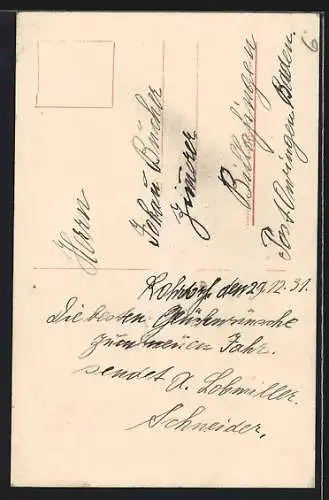 6
Herrn
Johann Bücher
Zimmerer
Billafingen
Post Owingen Baden.
den 29.12.31.
Die besten Glückwünsche
zum neuen Jahr.
sendet A. Lohmiller.
Schneider,